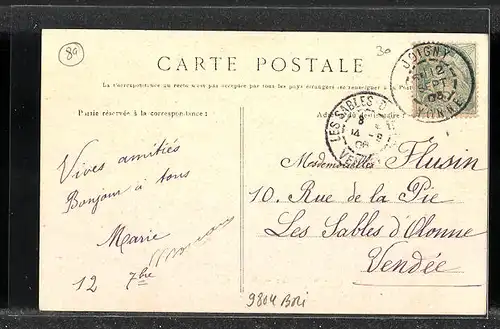 80
30
CARTE POSTALE
La correspondance au recto n'est pas acceptée par tous les pays étrangers (se renseigner à la Poste)
Partie réservée à la correspondance :
Vives amitiés
Bonjour à tous
Marie
12 7bre
JOIGNY
12
SEPT
06
YONNE
LES SABLES D'O
8
14 -9
06
VENDÉE
Mesdemoiselles Flusin
10. Rue de la Pie
Les Sables d'Olonne
Vendée
9804 BORI